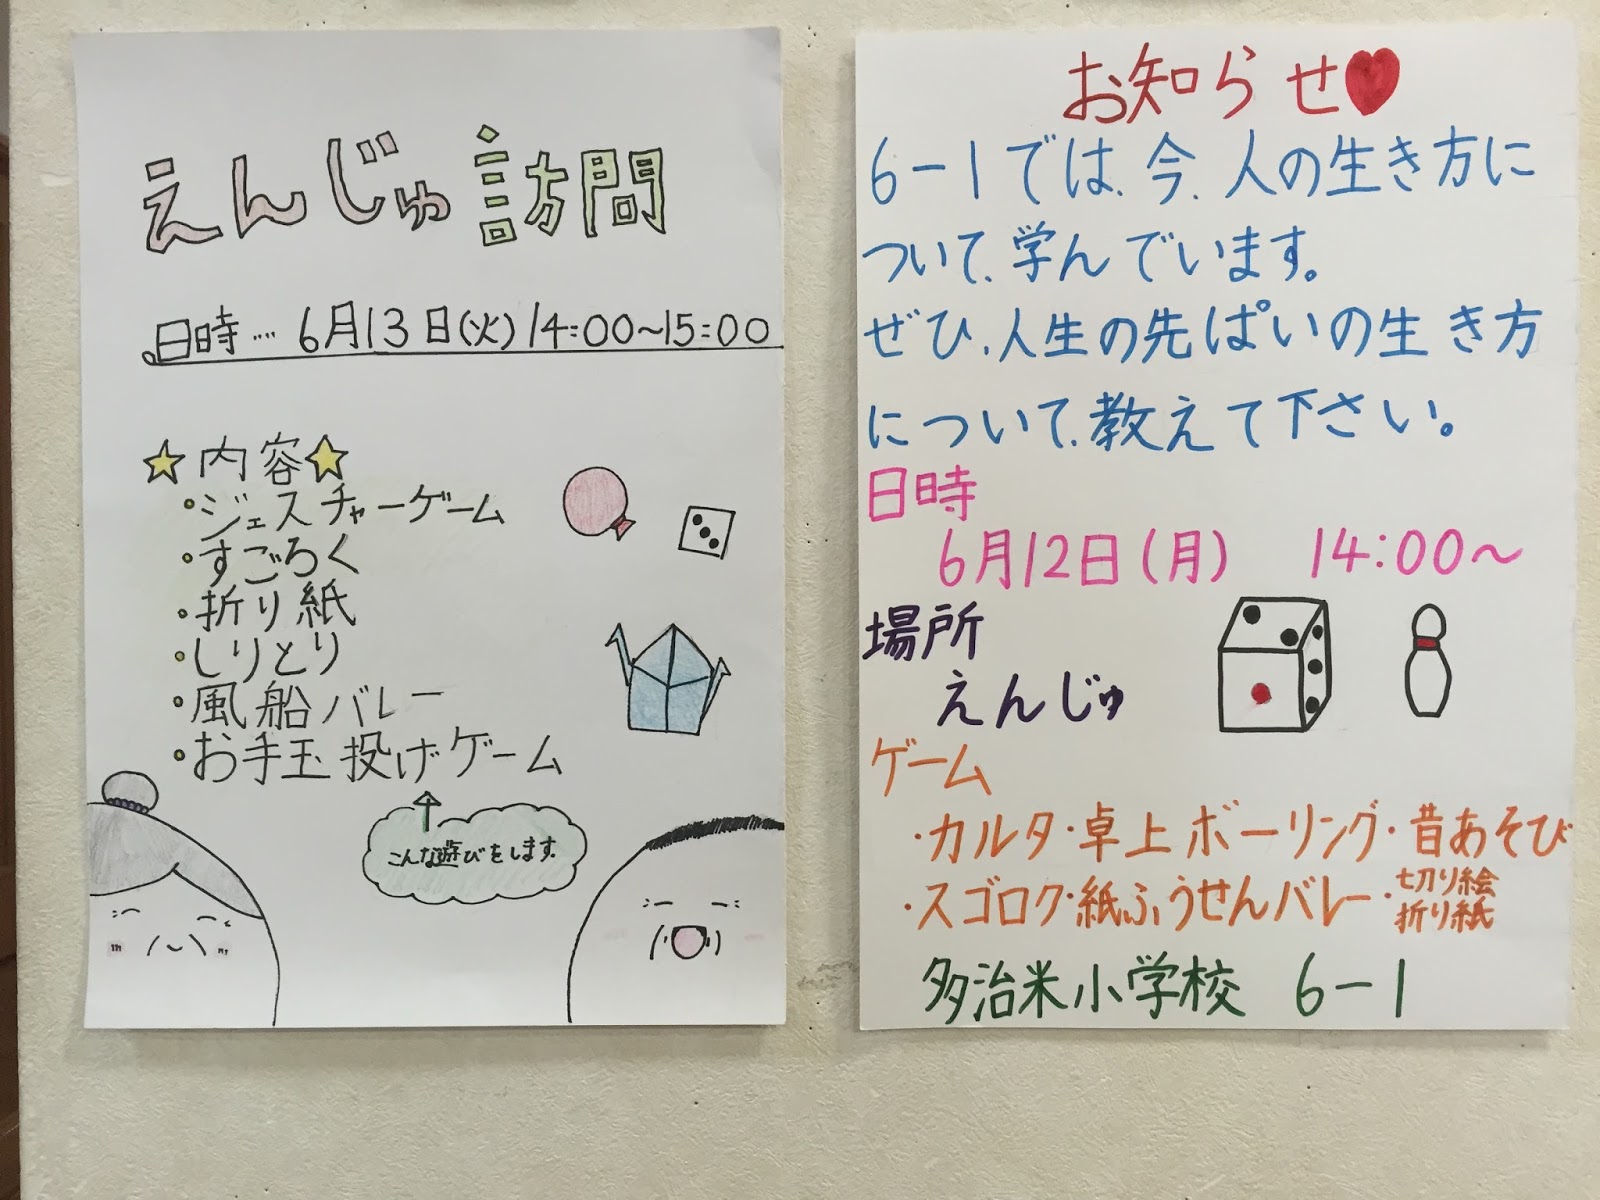 えんじゅ訪問
日時‥‥6月13日(火)14:00~15:00
★内容★
・ジェスチャーゲーム
・すごろく
・折り紙
・しりとり
・風船バレー
・お手玉投げゲーム
こんな遊びをします。
お知らせ♥
6-1では、今、人の生き方に
ついて、学んでいます。
ぜひ、人生の先ぱいの生き方
について、教えて下さい。
日時
6月12日(月) 14:00~
場所
えんじゅ
ゲーム
・カルタ・卓上ボーリング・昔あそび
・スゴロク・紙ふうせんバレー・切り絵
折り紙
多治米小学校 6-1